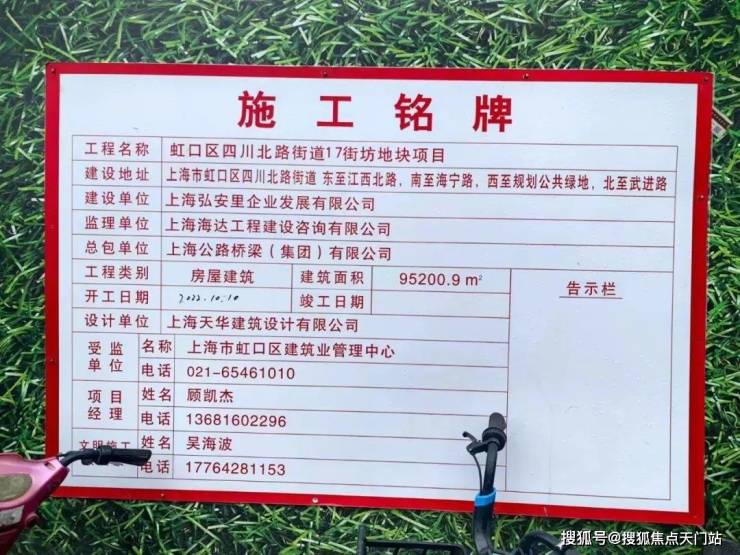 施工铭牌
工程名称 虹口区四川北路街道17街坊地块项目
建设地址 上海市虹口区四川北路街道 东至江西北路，南至海宁路，西至规划公共绿地，北至武进路
建设单位 上海弘安里企业发展有限公司
监理单位 上海海达工程建设咨询有限公司
总包单位 上海公路桥梁（集团）有限公司
工程类别 房屋建筑 建筑面积 95200.9 m²
告示栏
开工日期 2022.10.10 竣工日期
设计单位 上海天华建筑设计有限公司
受监单位 名称 上海市虹口区建筑业管理中心
电话 021-65461010
项目经理 姓名 顾凯杰
电话 13681602296
文明施工 姓名 吴海波
电话 17764281153
搜狐号@搜狐焦点天门站